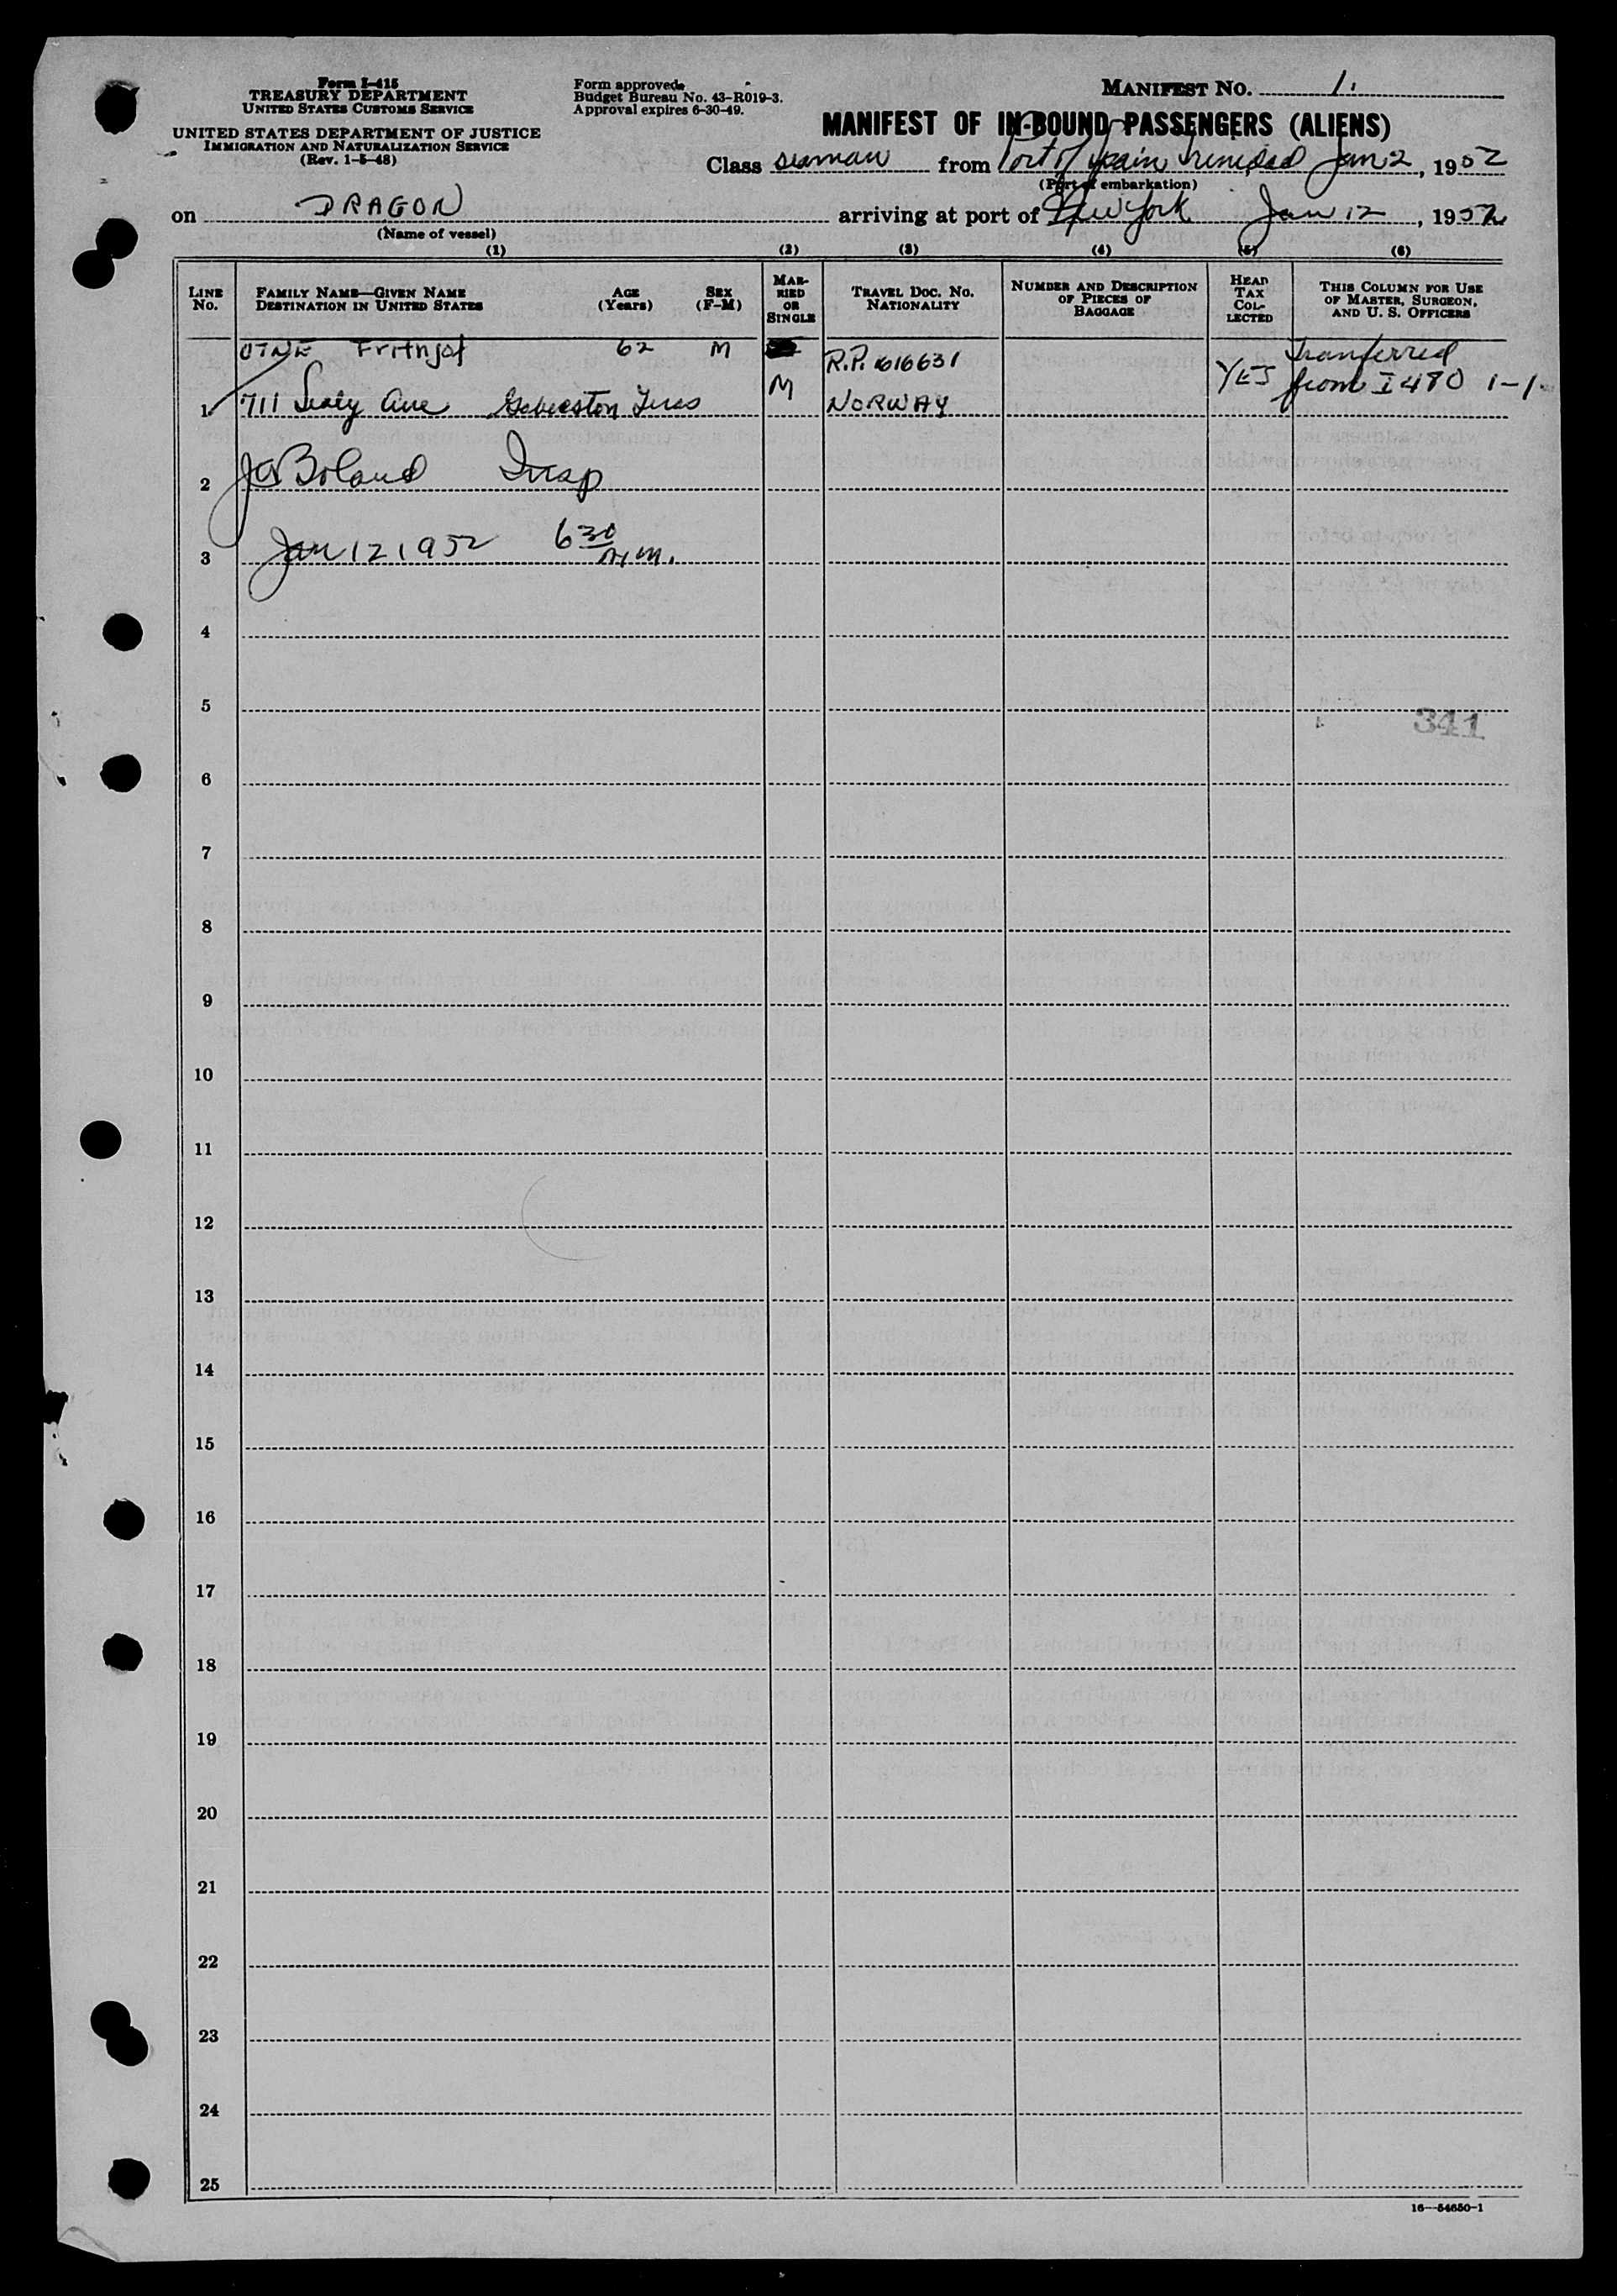 Form I-415
TREASURY DEPARTMENT
UNITED STATES CUSTOMS SERVICE
UNITED STATES DEPARTMENT OF JUSTICE
IMMIGRATION AND NATURALIZATION SERVICE
(Rev. 1-5-48)
Form approved.
Budget Bureau No. 43-R019-3.
Approval expires 6-30-49.
MANIFEST No. 1.
MANIFEST OF IN-BOUND PASSENGERS (ALIENS)
Class seaman from Port of Spain Trinidad Jan 2, 1952
(Port of embarkation)
on DRAGON arriving at port of New York Jan 12, 1952
(Name of vessel)
(1) (2) (3) (4) (5) (6)
LINE No.
FAMILY NAME—GIVEN NAME
DESTINATION IN UNITED STATES
AGE (Years)
SEX (F-M)
MARRIED OR SINGLE
TRAVEL DOC. NO.
NATIONALITY
NUMBER AND DESCRIPTION OF PIECES OF BAGGAGE
HEAD TAX COLLECTED
THIS COLUMN FOR USE OF MASTER, SURGEON, AND U. S. OFFICERS
OTNE Frithjof 62 M R.P. 616631 Tranferred
M YES from I 480 1-1.
1 711 Sealy Ave Galveston Texas NORWAY
2 Boland Insp
3 Jan 12 1952 6 30
4
5
341
6
7
8
9
10
11
12
13
14
15
16
17
18
19
20
21
22
23
24
25
16—54650-1